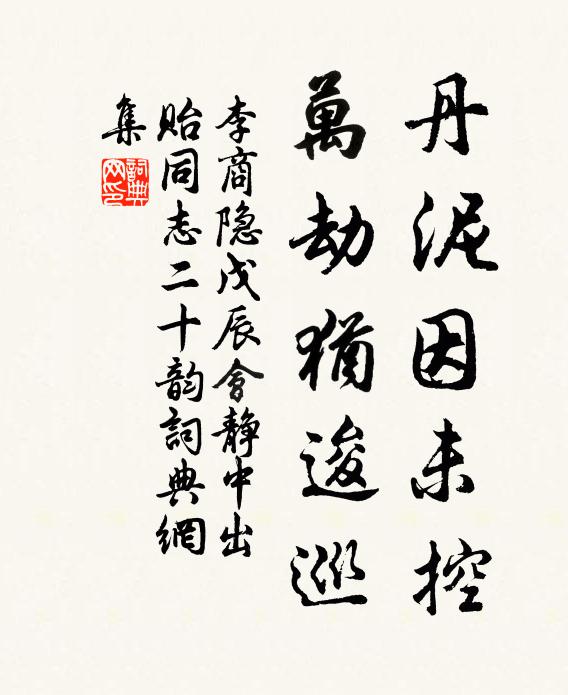 丹泥因未控
萬劫猶逡巡
李商隐戊辰會静中出
貽同志二十韵詞典網
集
詞典网印